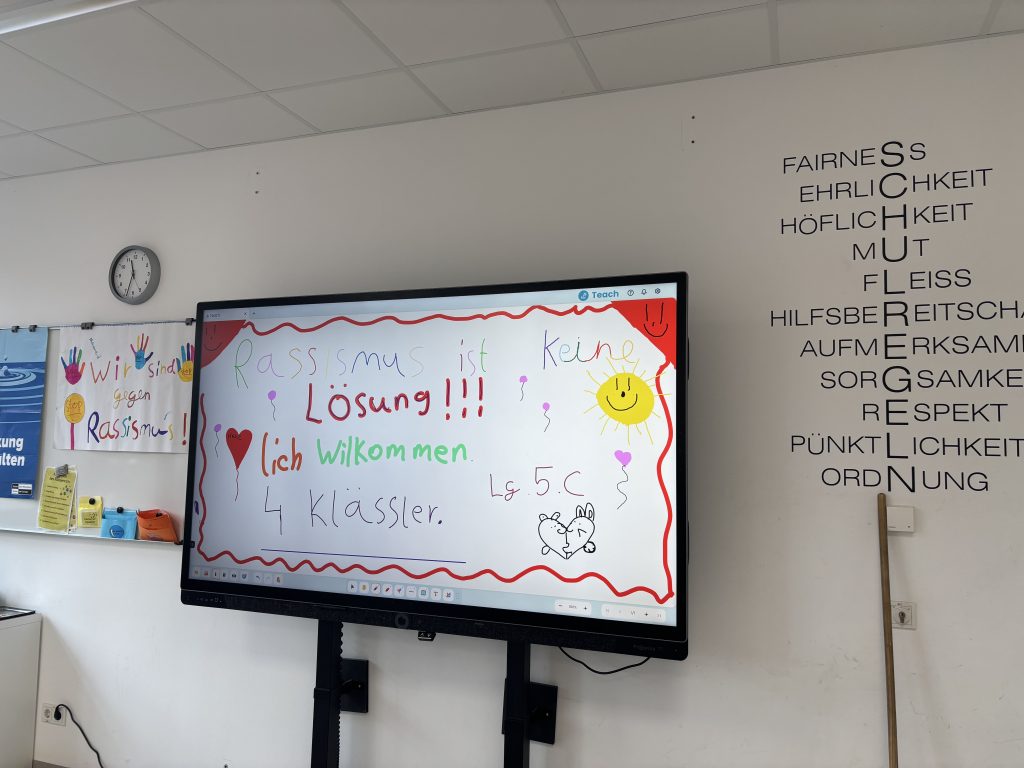 Wir sind
gegen
Rassismus!
Teach
Rassismus ist Keine
Lösung!!!
lich Wilkommen.
4 Klässler.
Lg. 5.C
FAIRNESS
EHRLICHKEIT
HÖFLICHKEIT
MUT
FLEISS
HILFSBEREITSCHA
AUFMERKSAM
SORGSAMKE
RESPEKT
PÜNKTLICHKEIT
ORDNUNG